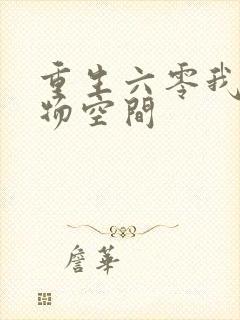 重生六零我
物空間
詹華